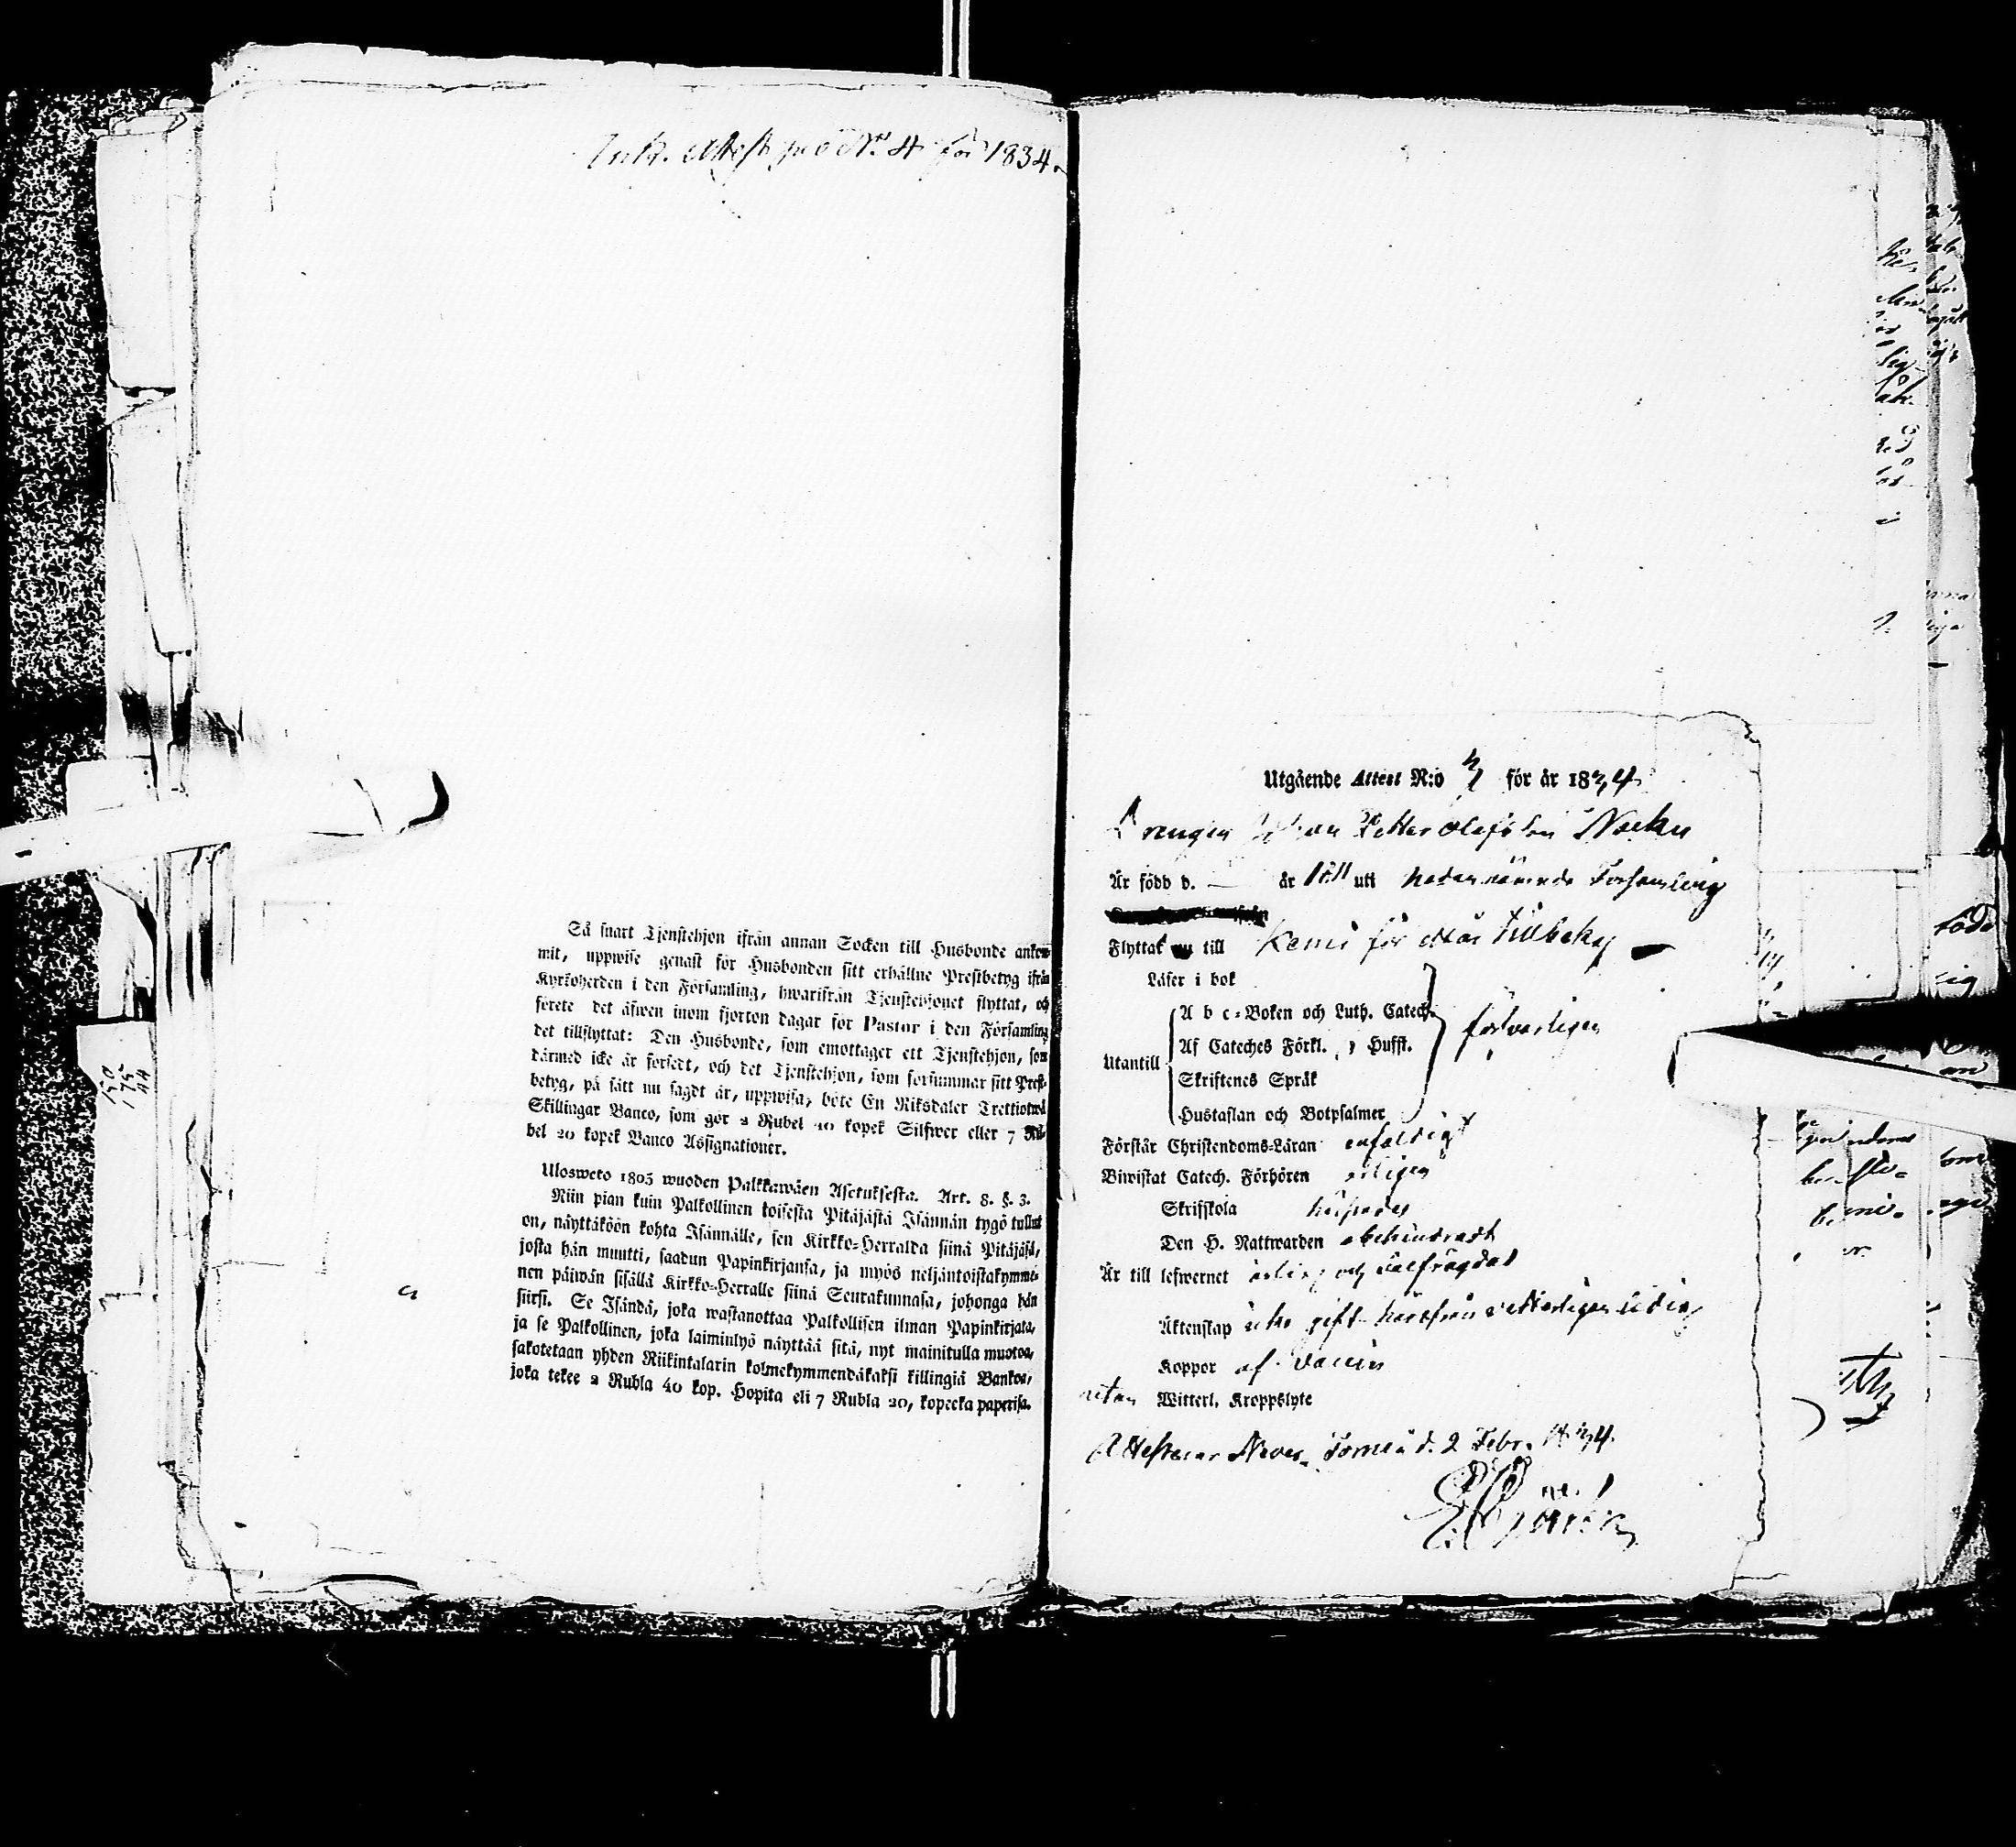 Attest N:o 4 för 1834.
Så snart Tjenstehjon ifrån annan Socken till Husbonde ankom-
mit, uppwise genast för Husbonden sitt erhållne Prestbetyg ifrån
Kyrkoherden i den Församling, hwarifrån Tjenstehjonet flyttat, och
förete det äfwen inom fjorton dagar för Pastor i den Församling
det tillflyttat: Den Husbonde, som emottager ett Tjenstehjon, som
därmed icke är försedt, och det Tjenstehjon, som försummar sitt Prest-
betyg, på sätt nu sagdt är, uppwisa, böte En Riksdaler Trettiotwå
Skillingar Banco, som gör 2 Rubel 40 kopek Silfwer eller 7 Ru-
bel 20 kopek Banco Assignationer.
Ulosweto 1805 wuoden Palkkawäen Asetuksesta. Art. 8. §. 3.
Niin pian kuin Palkollinen toisesta Pitäjästä Isännän tygö tullut
on, näyttäköön kohta Isännälle, sen Kirkko-Herralda siinä Pitäjäsä,
josta hän muutti, saadun Papinkirjansa, ja myös neljäntoistakymme-
nen päiwän sisällä Kirkko-Herralle siinä Seurakunnasa, johonga hän
siirsi. Se Isändä, joka wastanottaa Palkollisen ilman Papinkirjata,
ja se Palkollinen, joka laiminlyö näyttää sitä, nyt mainitulla muotoa,
sakotetaan yhden Riikintalarin kolmekymmendäkaksi killingiä Bankoa,
joka tekee 2 Rubla 40 kop. Hopita eli 7 Rubla 20, kopecka paperisa.
Utgående Attest N:o för år 1834
Drengen Johan Petter Olofsson
Är född d. — år uti nedannämnde Församling
Flyttat till Kemi för
Läser i bok
A b c-Boken och Luth. Catech.
Utantill Af Cateches Förkl. Hufst.
Skriftenes Språk
Hustaflan och Botpsalmer
försvarligen
Förstår Christendoms-Läran enfaldigt
Biwistat Catech. Förhören årligen
Skrifskola
Den H. Nattwarden obehindradt
Är till lefwernet ärlig och välfrägdad
Äktenskap icke gift härifrån vetterligen ledig
Koppor af Vaccin
utan Witterl. Kroppslyte
Attesterar Neder Torneå d. 2 Febr. 1834.